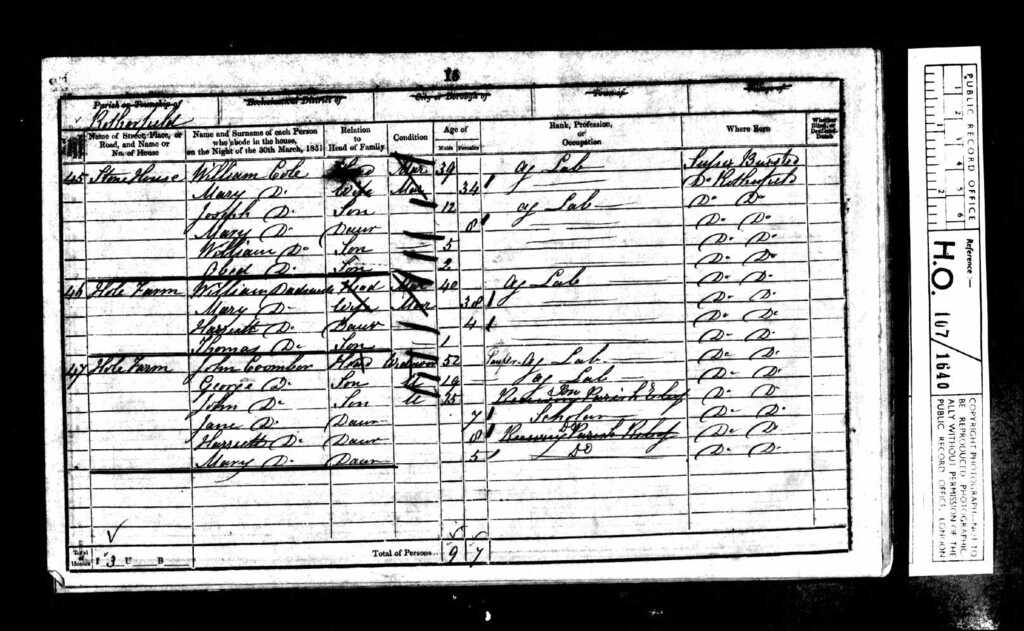 18
Parish or Township of
Ecclesiastical District of
City or Borough of
Town of
Village of
Rotherfield
Name of Street, Place, or Road, and Name or No. of House
Name and Surname of each Person who abode in the house, on the Night of the 30th March, 1851
Relation to Head of Family
Condition
Age of
Males
Females
Rank, Profession, or Occupation
Where Born
Whether Blind, or Deaf-and-Dumb
45 Stone House William Cole Head Mar 39 Ag Lab Sussex
Mary Do Wife Mar 34 Do Rotherfield
Joseph Do Son 12 Ag Lab Do Do
Mary Do Daur 8 Do Do
William Do Son 5 Do Do
Obed Do Son 2 Do Do
46 Hole Farm William Head Mar 40 Ag Lab Do Do
Mary Do Wife Mar 38 Do Do
Harriett Do Daur 4 Do Do
Thomas Do Son 1 Do Do
47 Hole Farm John Coomber Head 52 Ag Lab Do Do
George Do Son U 19 Ag Lab Do Do
John Do Son U 25 Parish Do Do
Jane Do Daur 7 Scholar Do Do
Harriett Do Daur 8 Parish Do Do
Mary Do Daur 5 Do Do Do
Total of Houses I 3 U B
Total of Persons 9 7
PUBLIC RECORD OFFICE
1 2 3 4 5 6
Reference:—
H.O. 107/1640
COPYRIGHT PHOTOGRAPH—NOT TO BE REPRODUCED PHOTOGRAPHICALLY WITHOUT PERMISSION OF THE PUBLIC RECORD OFFICE, LONDON